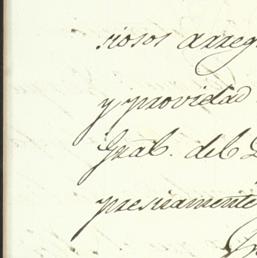 riosos arreg
y providad
Gral. del
presisamente